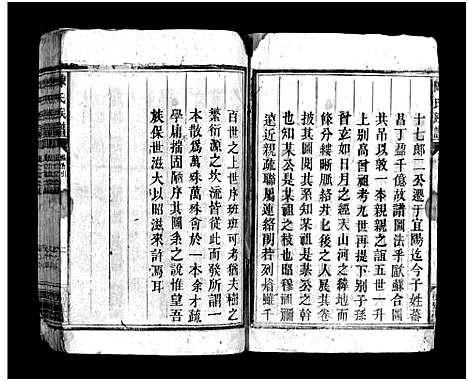 十七郎二公遷于宜陽迄今子姓蕃
昌丁盈千億故譜圖法乎歐蘇合圖
其吊以敦一本親親之誼五世一升
上别高曾祖考九世再提下及子孫
者玄如日月之經天山河之緯地而
條分縷晰脈絡井然後之人展其卷
披其圖閱其系知某祖為某公之幹
也知某公為某祖之枝也昭穆祖禰
遠近親疏聯屬連絡朗若列焙雖千
百世之上世序班班可考猶夫樹之
繁衍源之坎流皆從此而發所謂一
本散為萬殊萬殊會于一本余才疏
學庸擋固源序其圖系之說惟望吾
族保世滋大以昭滋來許焉耳
氏族譜